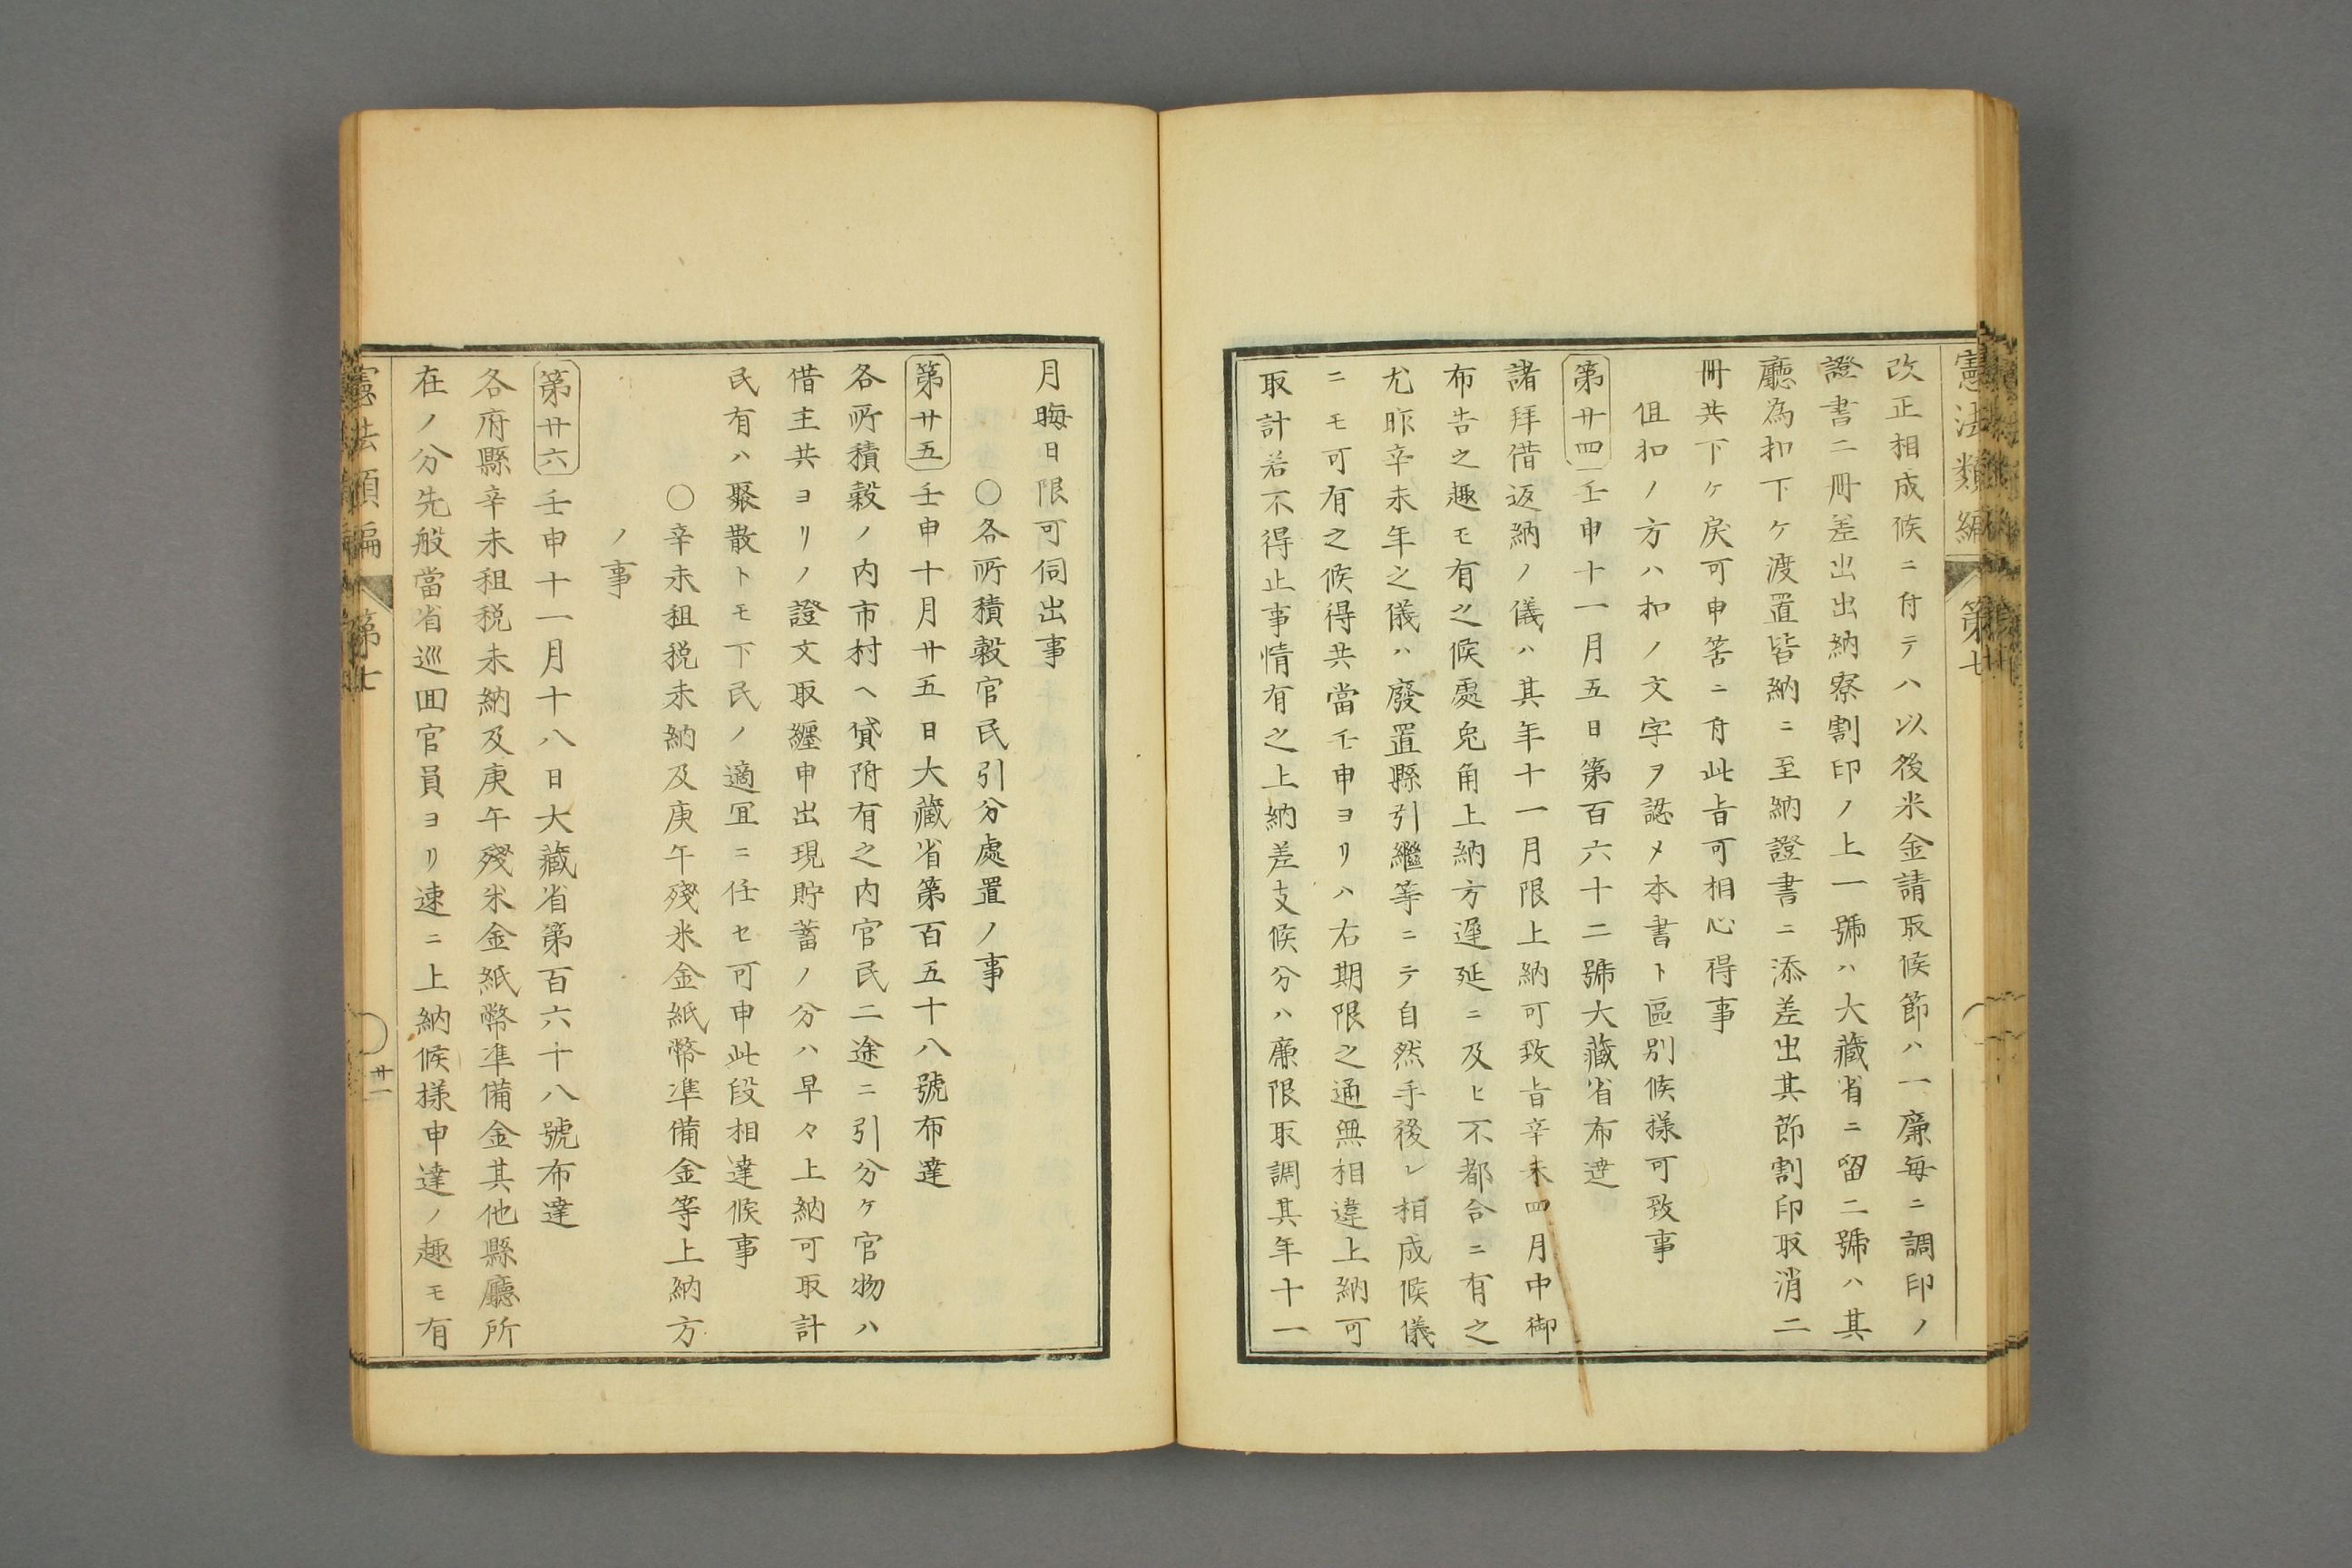 憲法類編 第七
改正相成候ニ付テハ以後米金請取候節ハ一廉每ニ調印ノ
證書二冊差出出納寮割印ノ上一號ハ大藏省ニ留二號ハ其
廳為扣下ケ渡置皆納ニ至納證書ニ添差出其節割印取消二
冊共下ケ戾可申筈ニ付此旨可相心得事
伹扣ノ方ハ扣ノ文字ヲ認メ本書ト區別候様可致事
第廿四 壬申十一月五日第百六十二號大藏省布達
諸拜借返納ノ儀ハ其年十一月限上納可致旨辛未四月中御
布告之趣モ有之候處兔角上納方遲延ニ及ヒ不都合ニ有之
尤昨辛未年之儀ハ廢置縣引繼等ニテ自然手後レ相成候儀
ニモ可有之候得共當壬申ヨリハ右期限之通無相違上納可
取計若不得止事情有之上納差支候分ハ廉限取調其年十一
月晦日限可伺出事
○各所積穀官民引分處置ノ事
第廿五 壬申十月廿五日大藏省第百五十八號布達
各所積穀ノ内市村ヘ貸附有之内官民二途ニ引分ケ官物ハ
借主共ヨリノ證文取纒申出現貯蓄ノ分ハ早々上納可取計
民有ハ聚散トモ下民ノ適冝ニ任セ可申此段相達候事
○辛未租税未納及庚午殘米金紙幣準備金等上納方
ノ事
第廿六 壬申十一月十八日大藏省第百六十八號布達
各府縣辛未租税未納及庚午殘米金紙幣準備金其他縣廳所
在ノ分先般當省巡囬官員ヨリ速ニ上納候様申達ノ趣モ有
憲法類編 第七 廿一